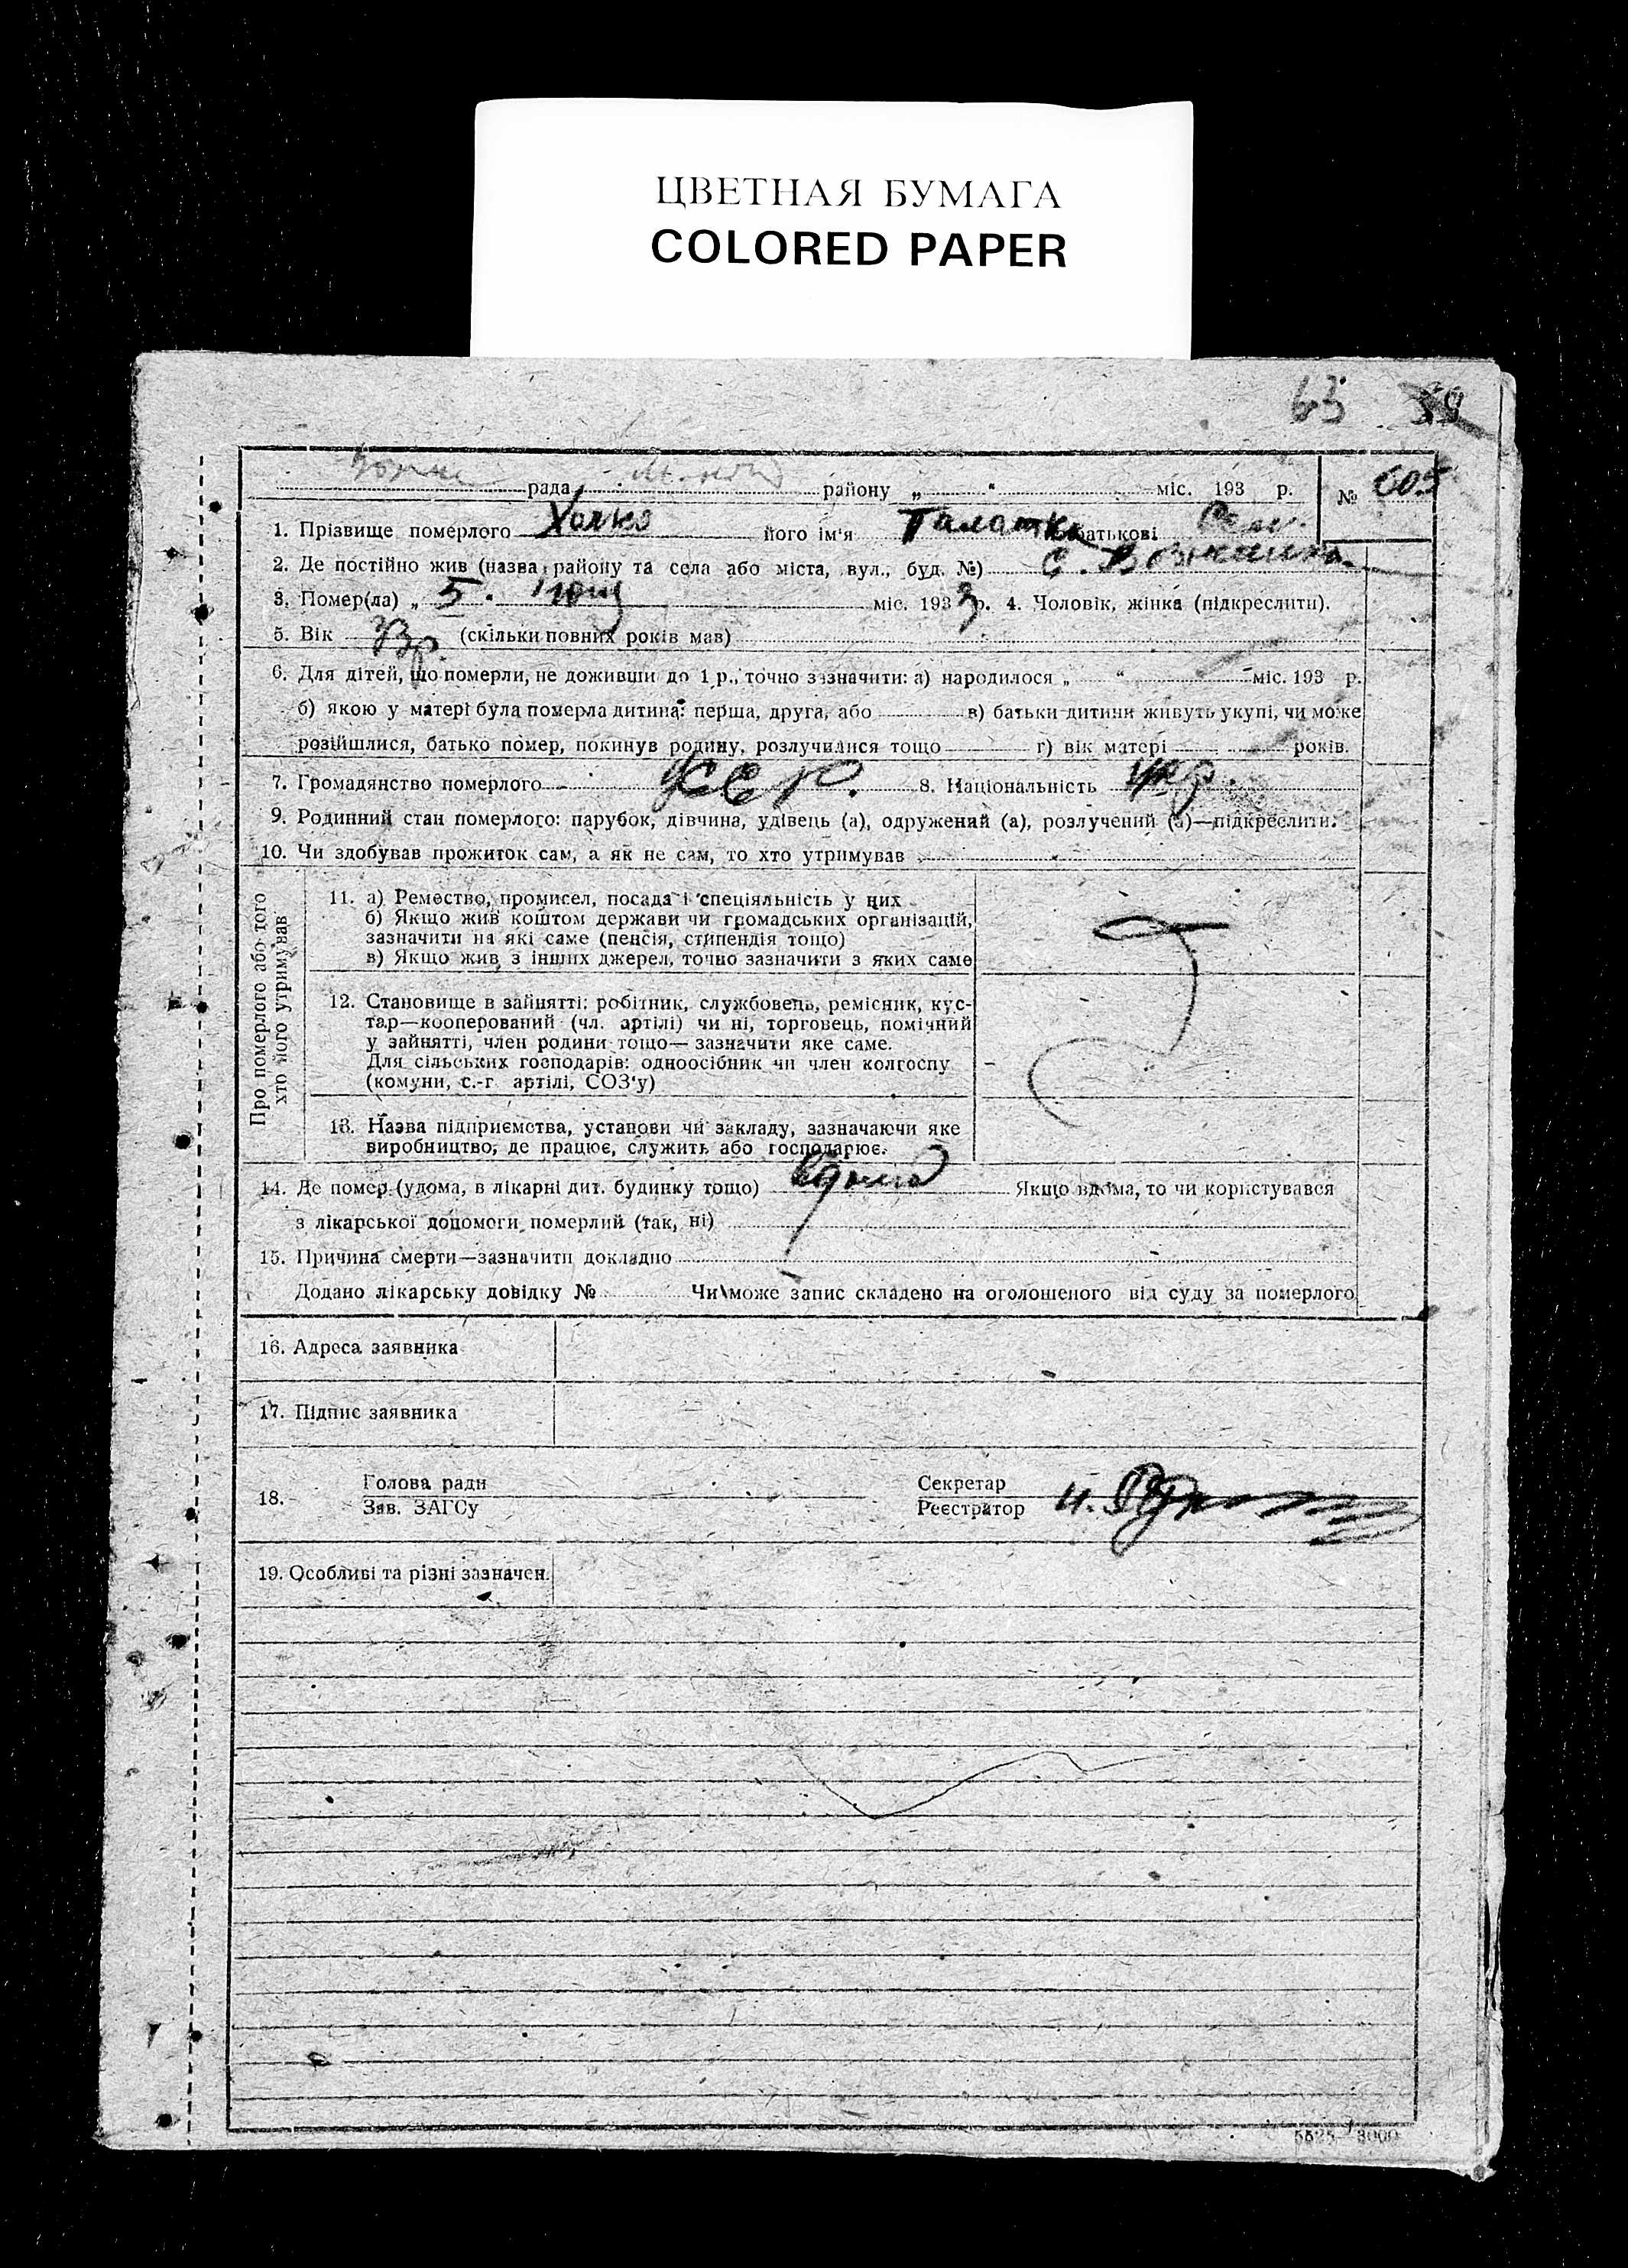 ЦВЕТНАЯ БУМАГА
COLORED PAPER
63
рада районy „ “ міс. 193 р. № 605
1. Прізвище померлого його ім'я батькові
2. Де постійно жив (назва району та села або міста, вул., буд. №) с.
3. Помер(ла) „ 5 . міс. 1933 р. 4. Чоловік, жінка (підкреслити).
5. Вік 3 р. (скільки повних років мав)
6. Для дітей, що померли, не доживши до 1 р., точно зазначити: а) народилося „ “ міс. 193 р.
б) якою у матері була померла дитина: перша, друга, або в) батьки дитини живуть укупі, чи може
розійшлися, батько помер, покинув родину, розлучилися тощо г) вік матері років.
7. Громадянство померлого УССР. 8. Національність укр.
9. Родинний стан померлого: парубок, дівчина, удівець (а), одружений (а), розлучений (а)—підкреслити.
10. Чи здобував прожиток сам, а як не сам, то хто утримував
Про померлого або того
хто його утримував
11. а) Ремество, промисел, посада і спеціяльність у них
б) Якщо жив коштом держави чи громадських організацій,
зазначити на які саме (пенсія, стипендія тощо)
в) Якщо жив з інших джерел, точно зазначити з яких саме
12. Становище в зайнятті: робітник, службовець, ремісник, кус-
тар—кооперований (чл. артілі) чи ні, торговець, помічний
у зайнятті, член родини тощо— зазначити яке саме.
Для сільських господарів: одноосібник чи член колгоспу
(комуни, с.-г артілі, СОЗ'у)
13. Назва підприємства, установи чи закладу, зазначаючи яке
виробництво, де працює, служить або господарює.
14. Де помер (удома, в лікарні дит. будинку тощо) Якщо вдома, то чи користувався
з лікарської допомоги померлий (так, ні)
15. Причина смерти—зазначити докладно
Додано лікарську довідку № Чи може запис складено на оголошеного від суду за померлого
16. Адреса заявника
17. Підпис заявника
18. Голова ради Секретар
Зав. ЗАГСу Реєстратор
19. Особливі та різні зазначен.
5525—3000